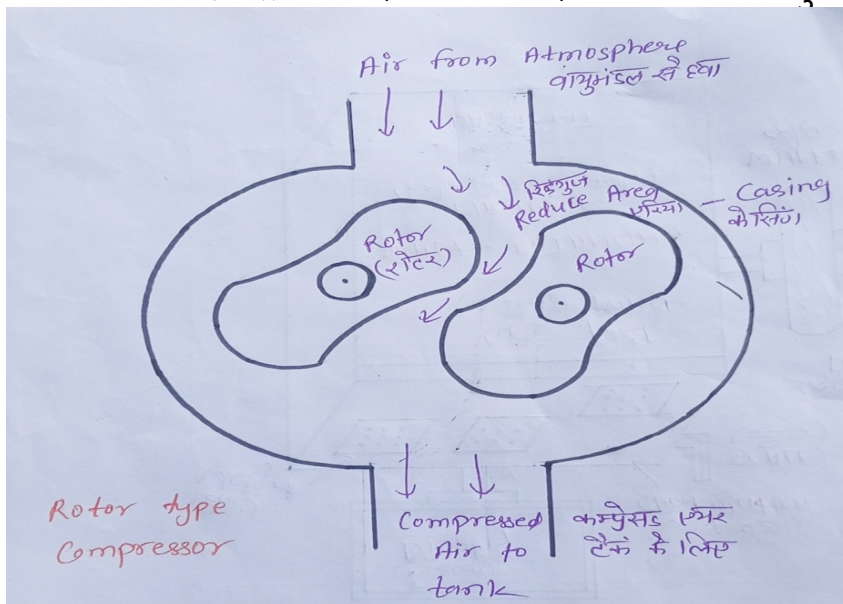 Air from Atmosphere
वायुमंडल से हवा
रिड्यूज
Reduce Area
एरिया
Casing
केसिंग
Rotor
(रोटर)
Rotor
Rotor type
Compressor
Compressed
Air to
tank
कम्प्रेसड एयर
टैंक के लिए